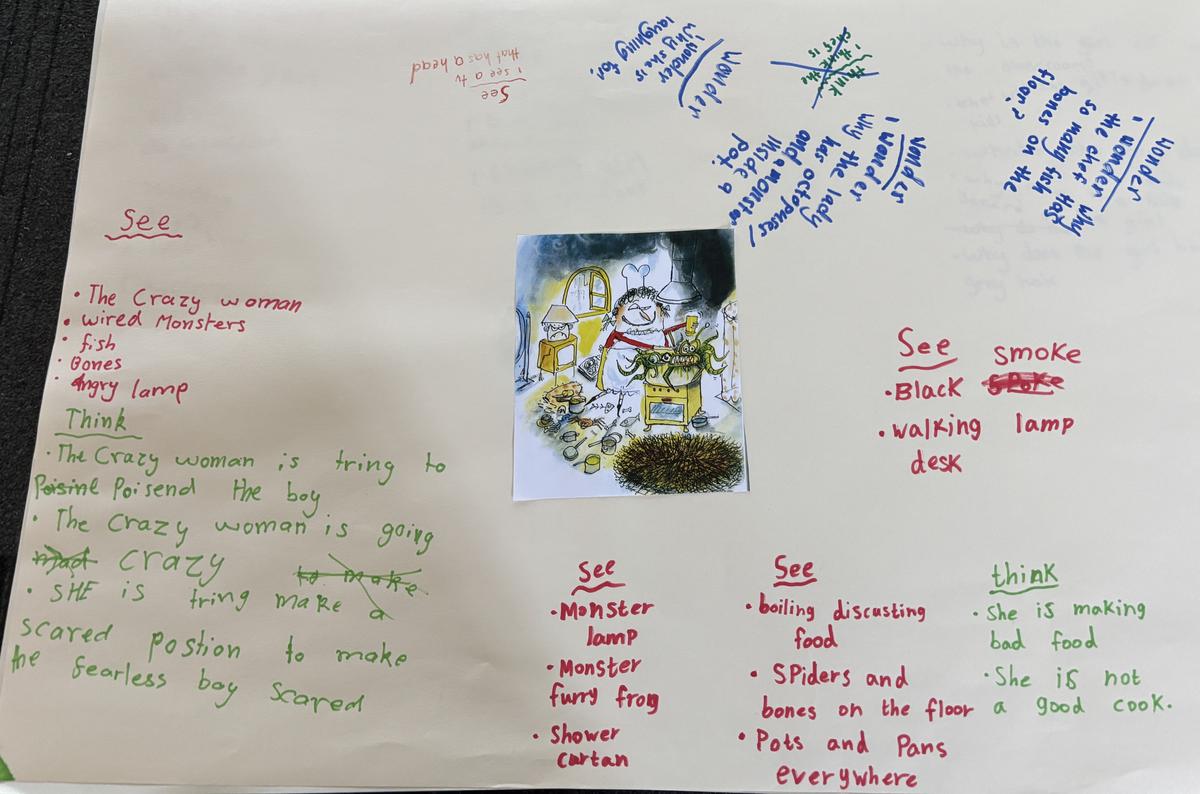 See
I see a tv
that has a head
Wonder
I wonder
why she is
laughing for.
think
I think the
shes is
Wonder
I wonder
why the lady
has octopuses/
and a monster
Inside a
pot.
Wonder
I wonder why
the chef has
so many fish
bones on the
floor?
See
• The Crazy woman
• wired Monsters
• fish
• Bones
• Angry lamp
Think
• The Crazy woman is tring to
Poisine Poisend the boy
• The Crazy woman is going
mad crazy to make
• SHE is tring make a
scared postion to make
the fearless boy scared
See
• Black smoke
• walking lamp
desk
See
• Monster
lamp
• Monster
furry frog
• Shower
curtan
See
• boiling discusting
food
• SPiders and
bones on the floor
• Pots and Pans
everywhere
think
• She is making
bad food
• She is not
a good cook.